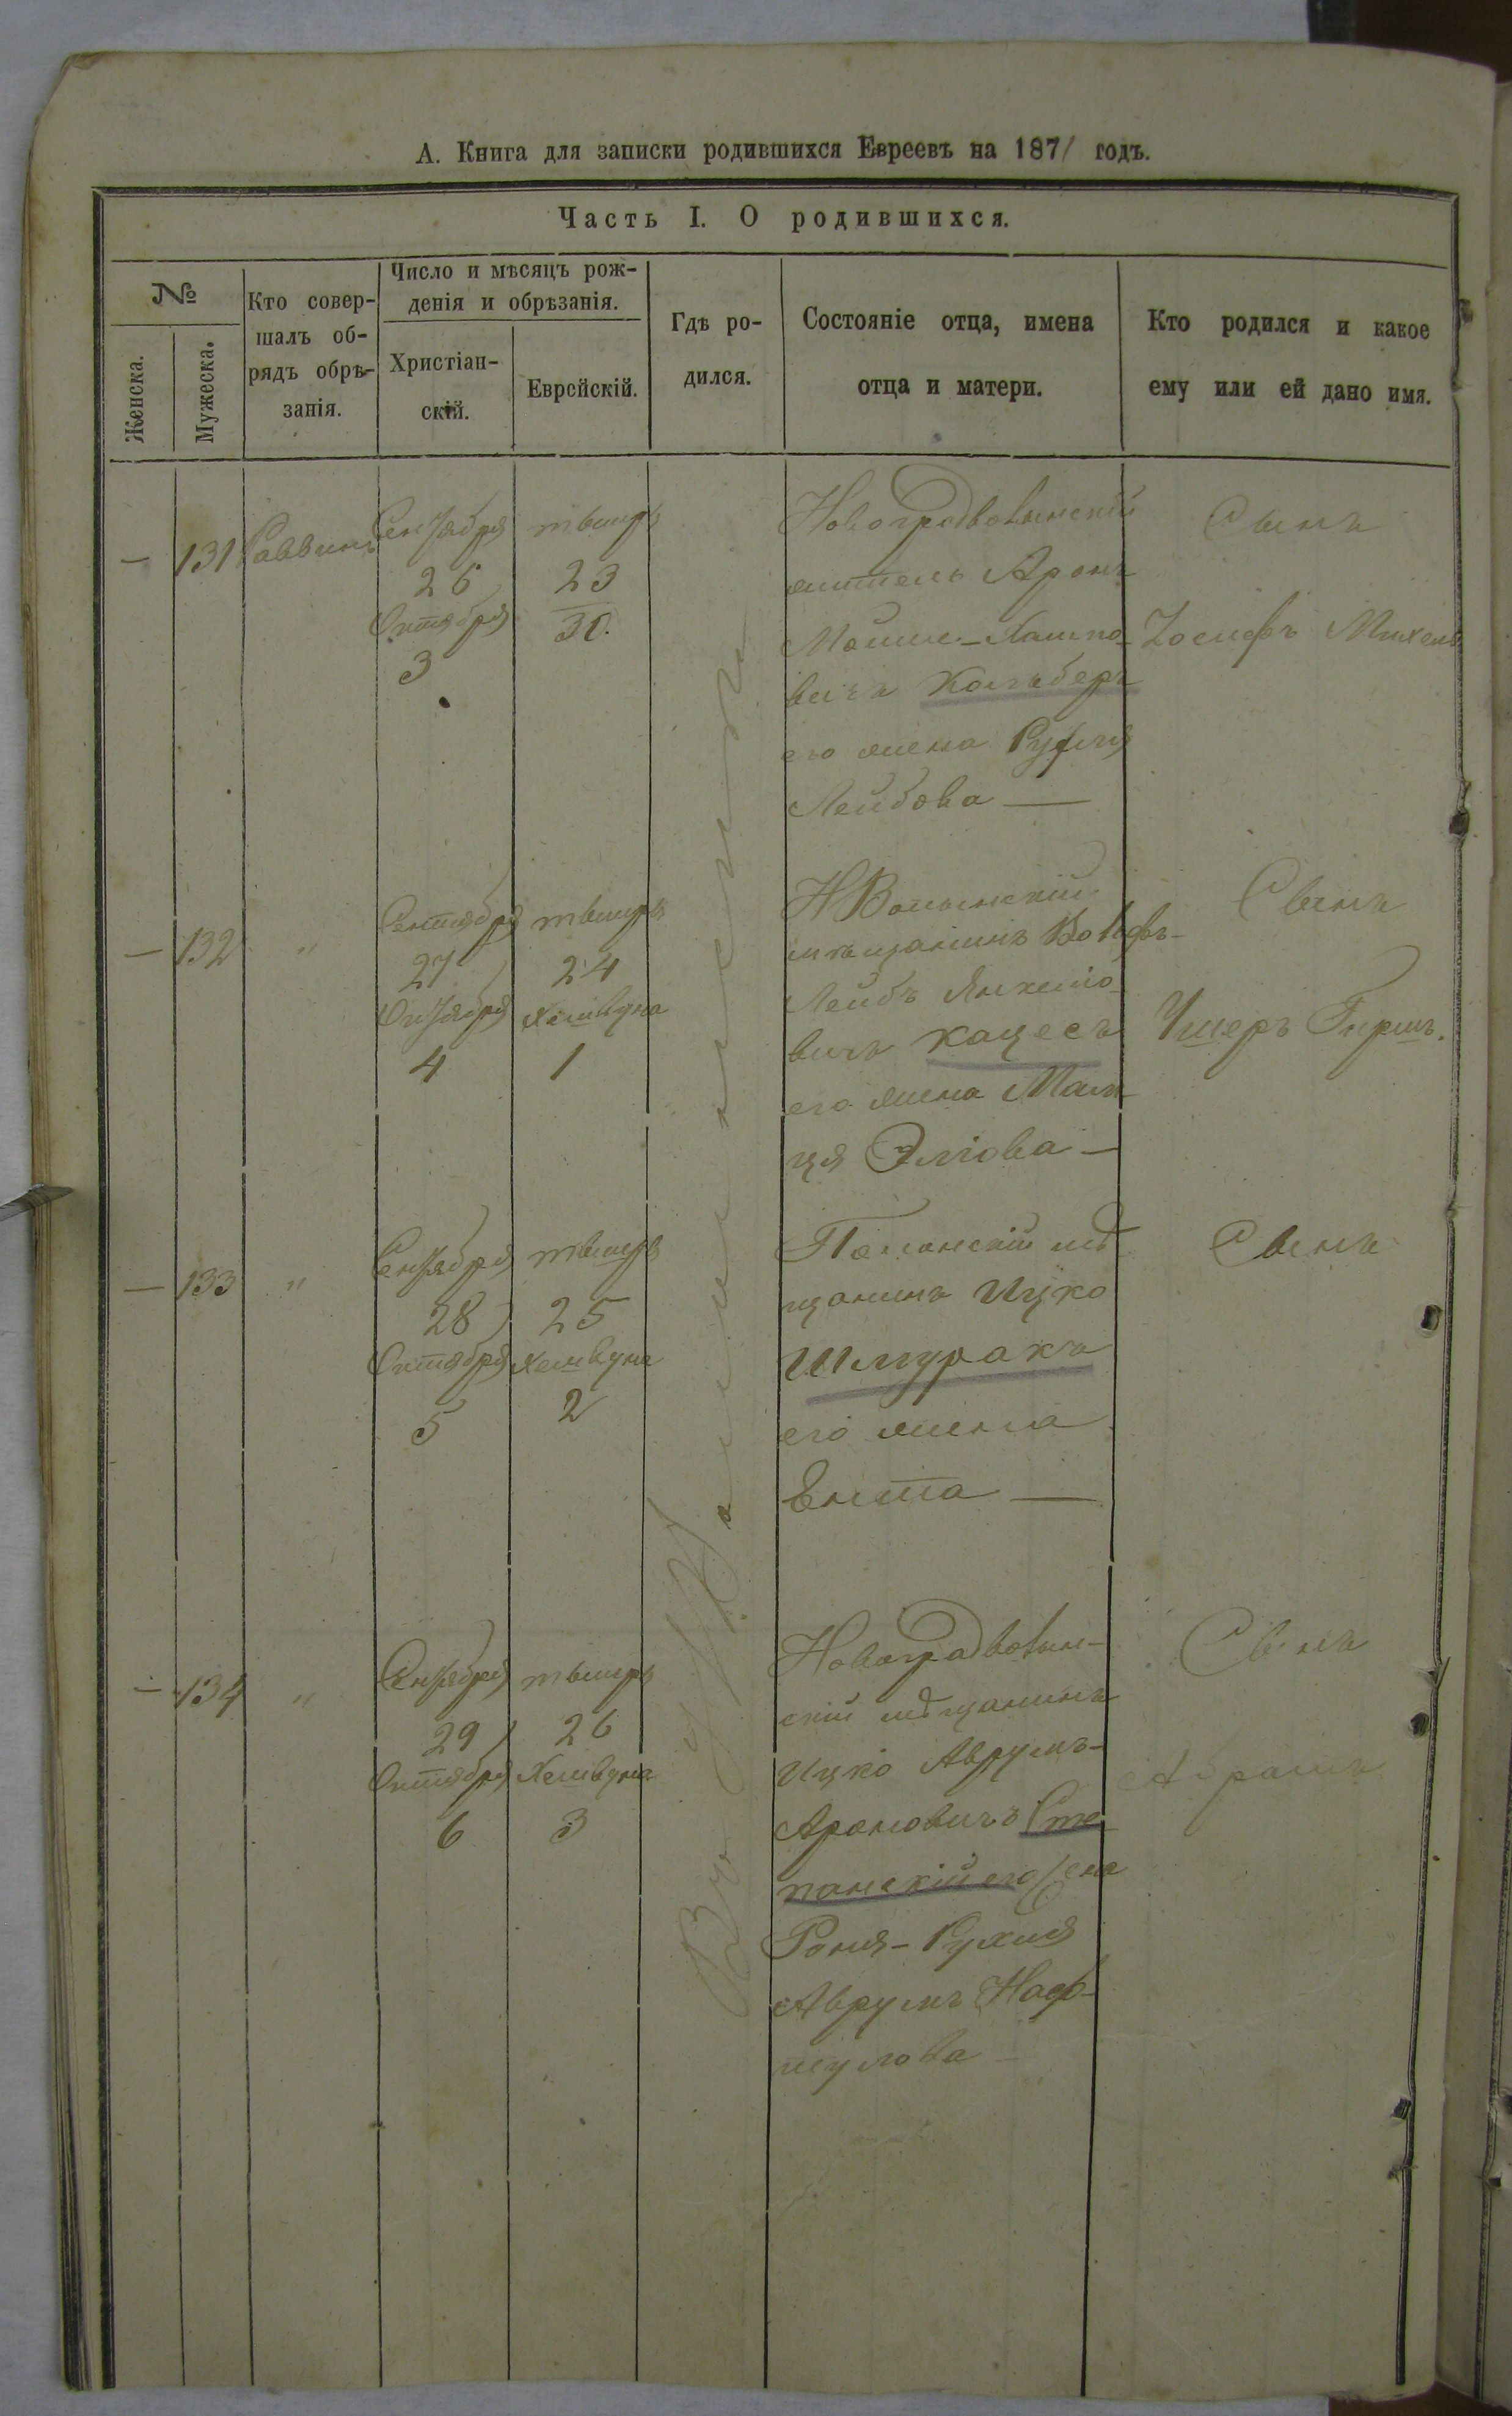 А. Книга для записки родившихся Евреевъ на 1871 годъ.
Часть I. О родившихся.
№
Женска.
Мужеска.
Кто совер-
шалъ об-
рядъ обрѣ-
занія.
Число и мѣсяцъ рож-
денія и обрѣзанія.
Христіан-
скій.
Еврейскій.
Гдѣ ро-
дился.
Состояніе отца, имена
отца и матери.
Кто родился и какое
ему или ей дано имя.
— 131 Раввинъ
Сентября
26
Октября
3
тышръ
23
30.
Новоградволынскій
житель Аронъ
Мошко-Хаимо-
вичъ Кольберъ
его жена Рухля
Лейбова —
Сынъ
Іосифъ Михель
— 132 "
Сентября
27
Октября
4
тышръ
24
Хешвуна
1
НВолынскій
мѣщанинъ Вольфъ-
Лейбъ Янкелю-
вичъ Кацесъ
его жена Маль-
ця Эліова —
Сынъ
Ушеръ Гиршъ.
— 133 "
Сентября
28
Октября
5
тышръ
25
Хешвуна
2
мѣ
щанинъ Ицко
Шмуракъ
его жена
Ента —
Сынъ
— 134 "
Сентября
29
Октября
6
тышръ
26
Хешвуна
3
Новоградволын-
скій мѣщанинъ
Ицко Аврумъ-
Ароновичъ Сте-
панскій его жена
Роня-Рухля
Аврумъ Наф-
тулова —
Сынъ
Абрамъ
Въ